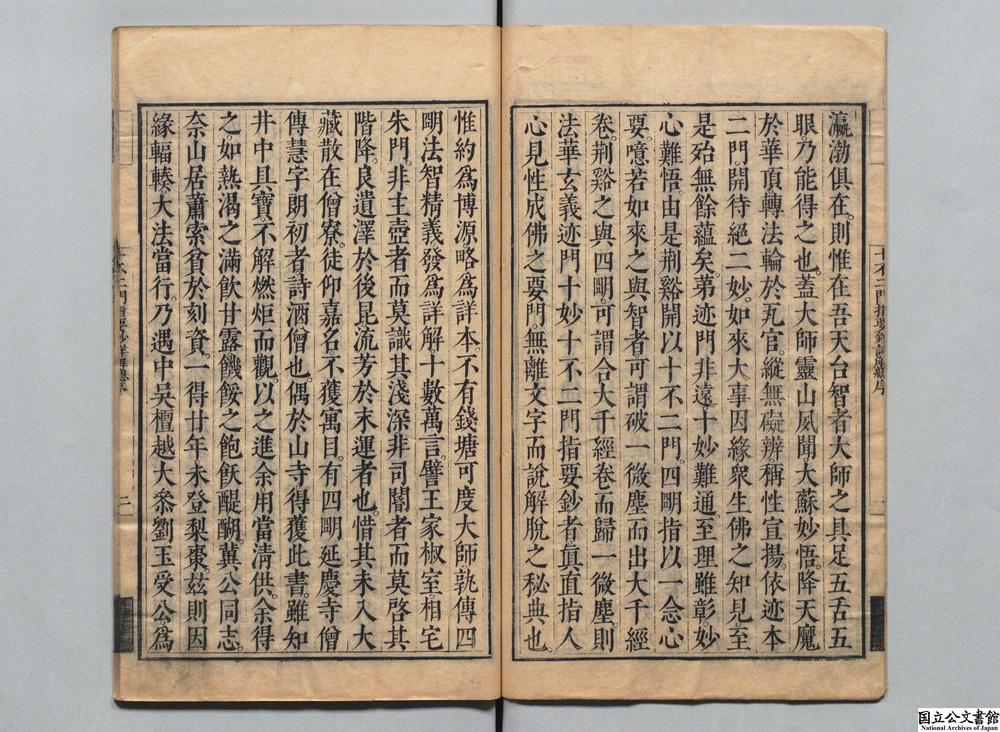 瀛渤俱在。則惟在吾天台智者大師之具足五舌五
眼。乃能得之也。蓋大師靈山夙聞大蘇妙悟。降天魔
於華頂。轉法輪於瓦官。縱無礙辨稱性宣揚。依迹本
二門。開待絕二妙。如來大事因緣衆生佛之知見。至
是殆無餘蘊矣。第迹門非遠。十妙難通。至理雖彰。妙
心難悟。由是荆谿開以十不二門。四明指以一念心
要。噫若如來之與智者。可謂破一微塵而出大千經
卷。荆谿之與四明。可謂合大千經卷而歸一微塵。則
法華玄義迹門十妙十不二門指要鈔者。眞直指人
心見性成佛之要門。無離文字而說解脫之秘典也
惟約爲博源略爲詳本。不有錢塘可度大師孰傳四
明法智精義發爲詳解十數萬言。譬王家椒室相宅
朱門。非主壼者而莫識其淺深。非司閽者而莫啓其
階降。良遺澤於後昆。流芳於末運者也。惜其未入大
藏。散在僧寮。徒仰嘉名。不獲寓目。有四明延慶寺僧
傳慧。字朗初者。詩酒僧也。偶於山寺。得獲此書。雖知
井中具寶。不解燃炬而觀。以之進余用當清供。余得
之。如熱渴之滿飲甘露。饑餒之飽飫醍醐。冀公同志。
奈山居蕭索。貧於刻資。一得廿年未登梨棗。茲則因
緣輻輳。大法當行。乃遇中吳檀越大叅劉玉受公爲
十不二門指要鈔詳解總序
一
十不二門指要鈔詳解總序
二
国立公文書館
National Archives of Japan